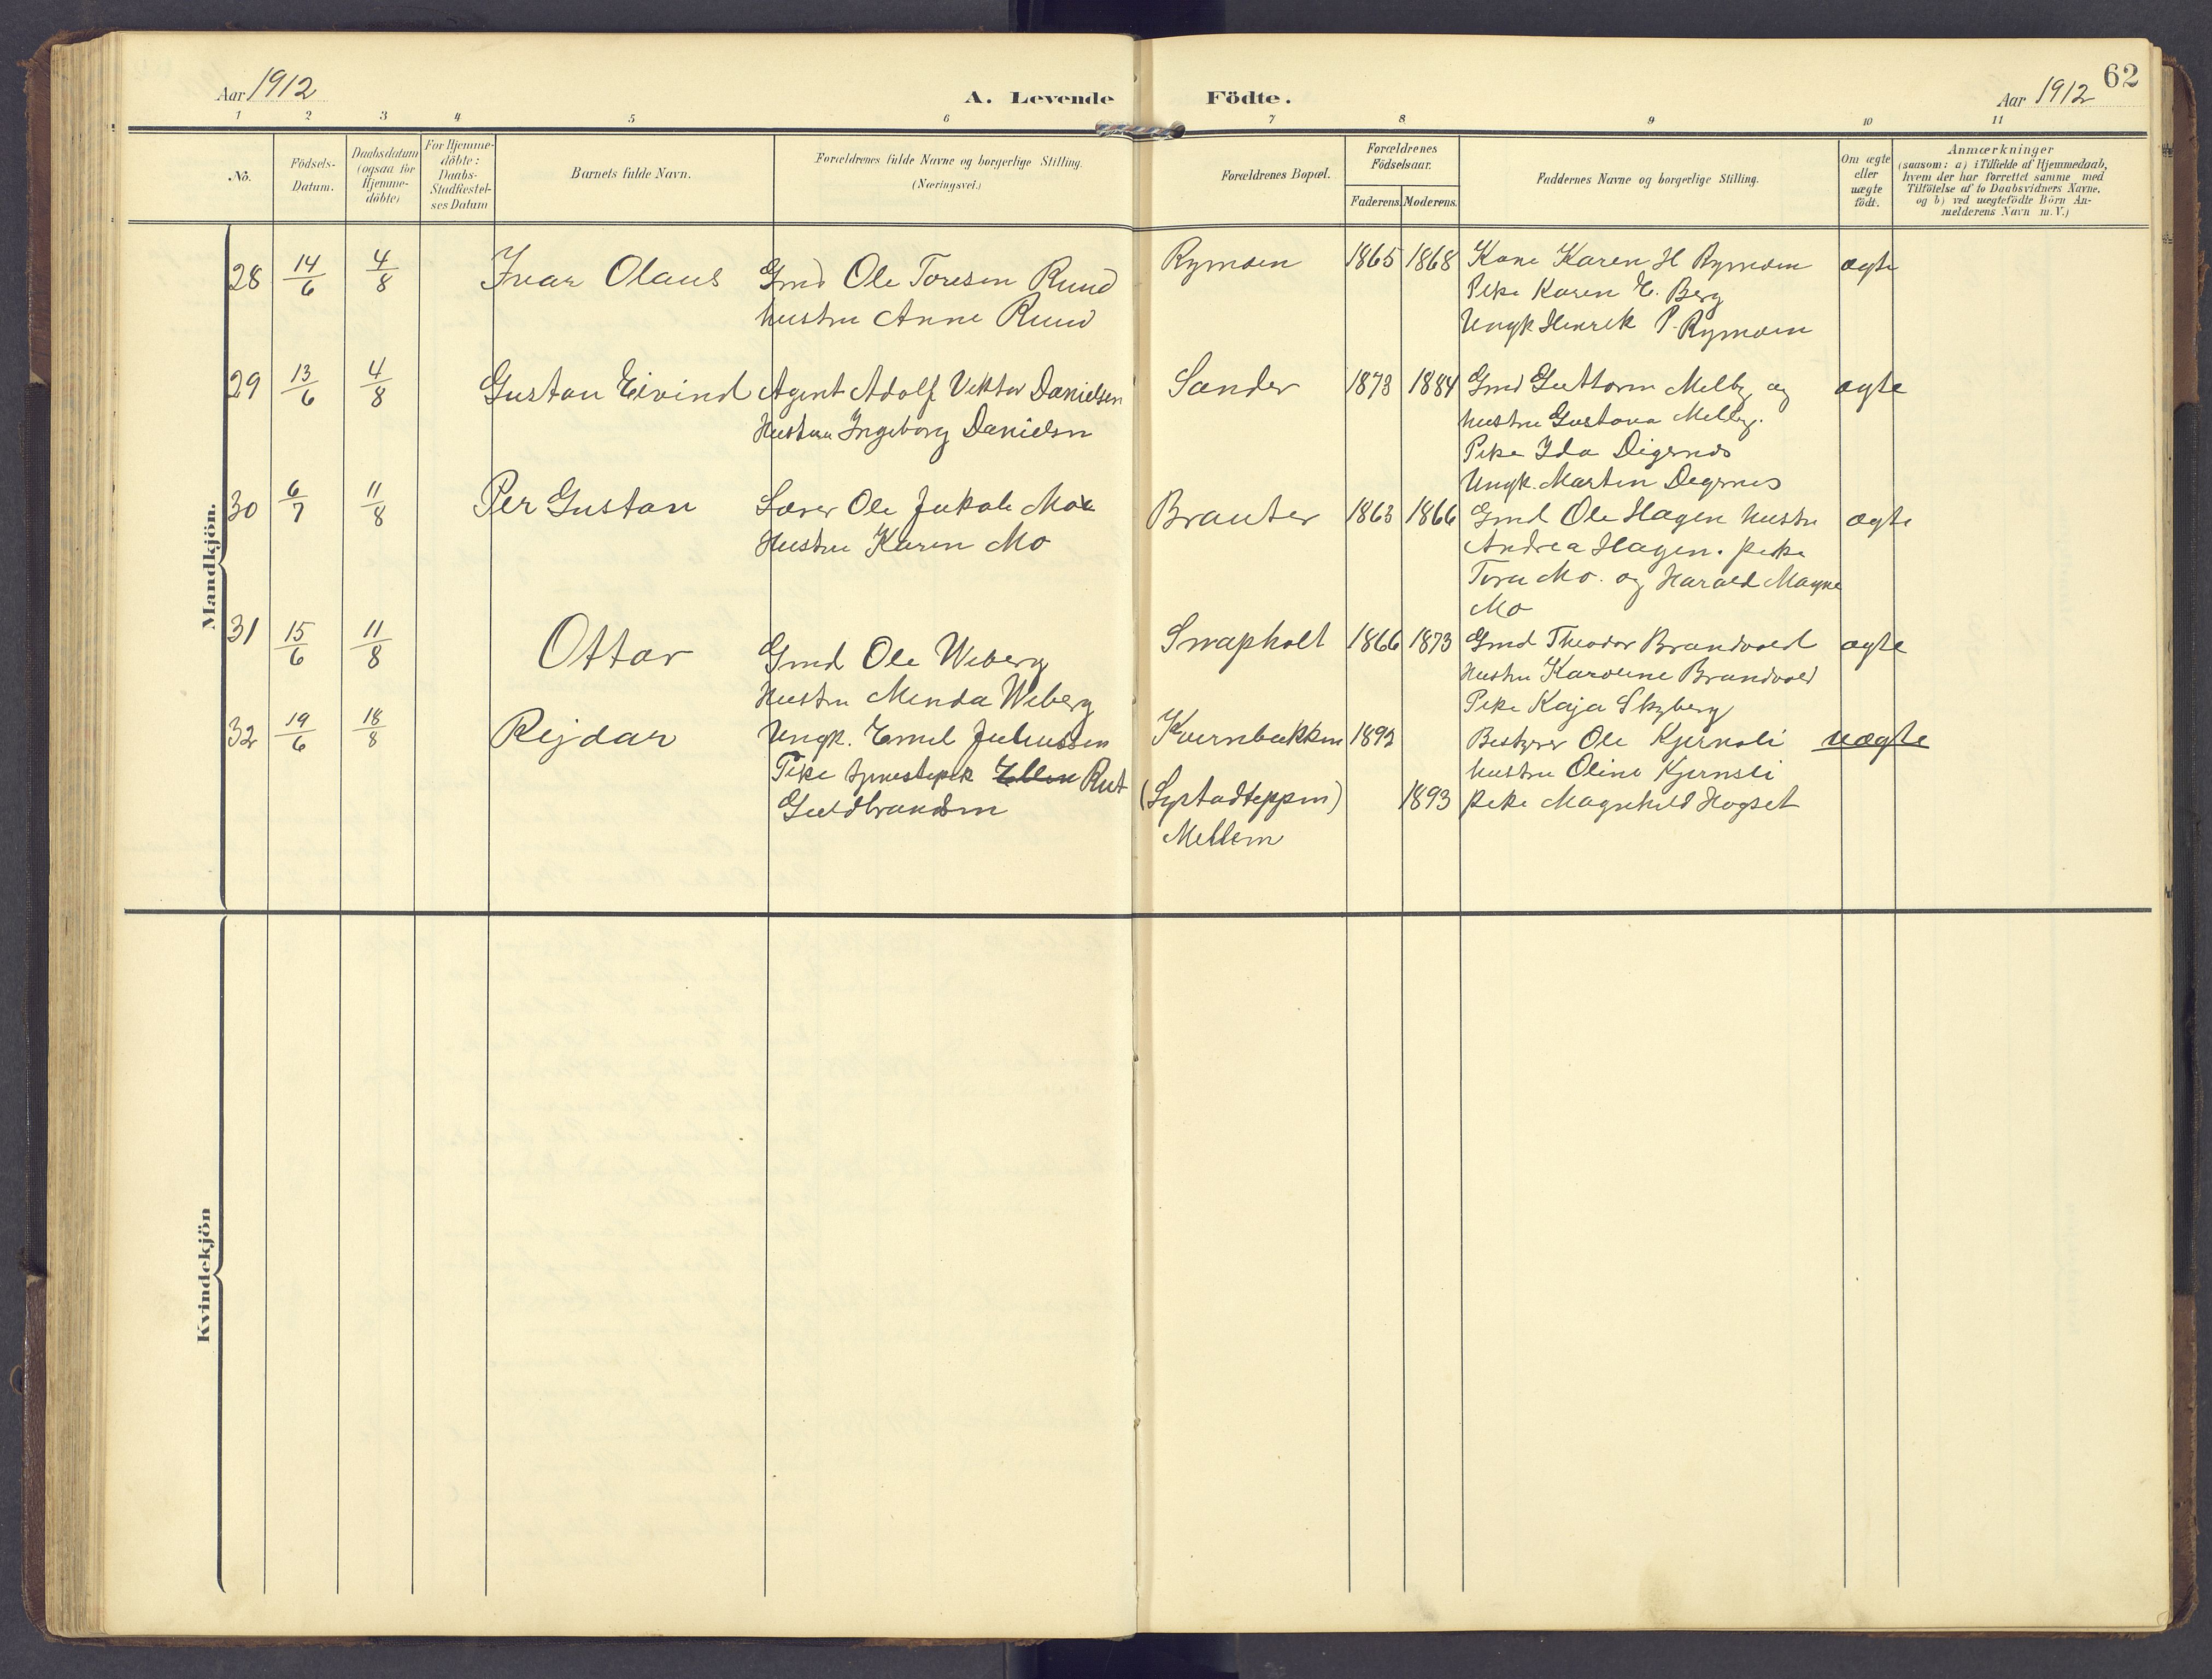 Aar 1912
A. Levende Födte.
Aar 1912
62
1 2 3 4 5 6 7 8 9 10 11
No.
Födsels-
Datum.
Daabsdatum
(ogsaa for
Hjemme-
döbte)
For Hjemme-
döbte:
Daabs-
Stadfæstel-
ses Datum
Barnets fulde Navn.
Forældrenes fulde Navne og borgerlige Stilling.
(Næringsvei.)
Forældrenes Bopæl.
Forældrenes
Födselsaar.
Faderens. Moderens.
Faddernes Navne og borgerlige Stilling.
Om ægte
eller
uægte
födt.
Anmærkninger
(saasom: a) i Tilfælde af Hjemmedaab,
hvem der har forrettet samme med
Tilföielse af to Daabsvidners Navne,
og b) ved uægtefödte Börn An-
melderens Navn m.V.)
Mandkjön.
28 14/6 4/8 Ivar Olaus Gmd Ole Toresen Ruud Rymoen 1865 1868 Kone Karen H Rymoen ægte
hustru Anne Ruud
Pike Karen E. Berg
Ungk Henrik P. Rymoen
29 13/6 4/8 Gustav Eivind Agent Adolf Viktor Danielsen Sander 1873 1884 Gmd Guttorm Melby og ægte
Hustru Ingeborg Danielsen
hustru Gustava Melby.
Pike Ida Digernes
Ungk. Martin Degernes
30 6/7 11/8 Per Gustav Lærer Ole Jakob Mo Brauter 1863 1866 Gmd Ole Hagen hustru ægte
Hustru Karen Mo
Andrea Hagen. pike
Tora Mo. og Harald Magne
Mo
31 15/6 11/8 Ottar Gmd Ole Weberg Snapholt 1866 1873 Gmd Theodor Brandvold ægte
Hustru Menda Weberg
Hustru Karoline Brandvold
Pike Kaja Skyberg
32 19/6 18/8 Rejdar Ungk. Emil Juliussen Kvernbækken 1892 Bestyrer Ole Kjernsli uægte
Pike tjenestepik Ellen Rut
Guldbrandsen
(Systadteppen)
Mellem
1893
hustru Oline Kjernsli
pike Magnhild Hogset
Kvindekjön